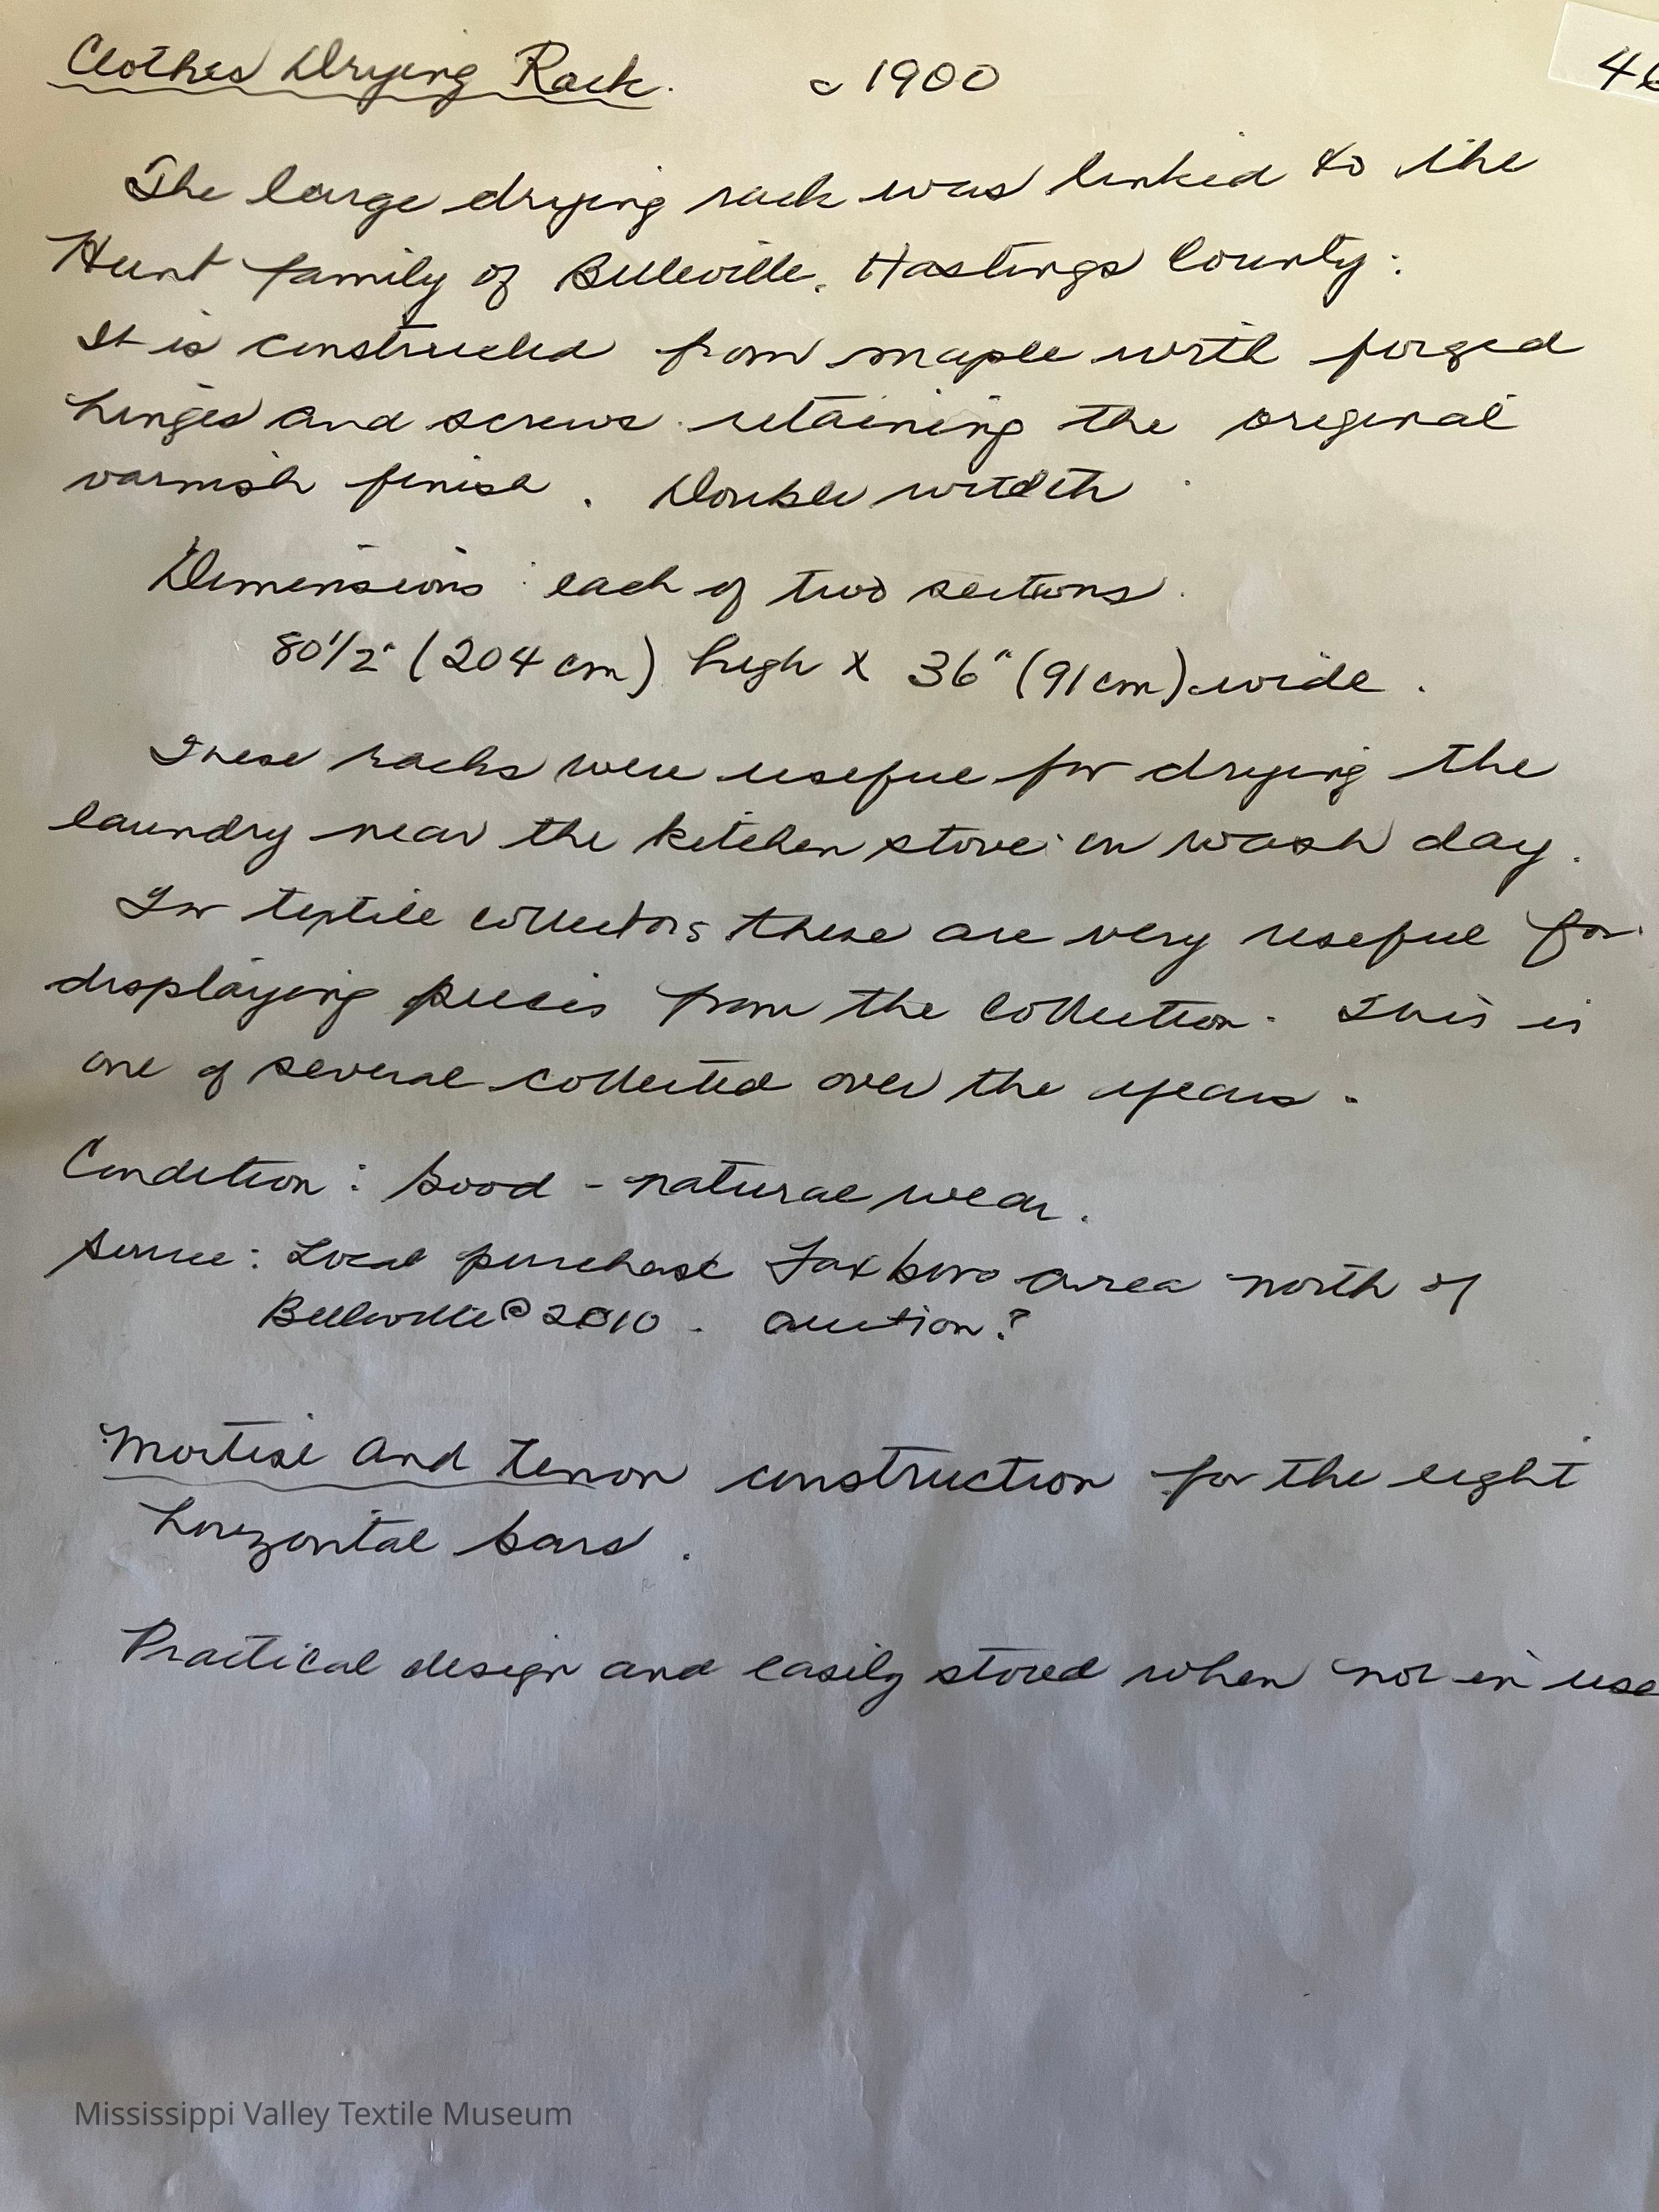 Clothes Drying Rack. c 1900
The large drying rack was linked to the
Hunt family of Belleville, Hastings County.
It is constructed from maple with forged
hinges and screws retaining the original
varnish finish. Double width
Dimensions: each of two sections.
80 1/2" (204 cm) high x 36" (91 cm) wide.
These racks were useful for drying the
laundry near the kitchen stove on wash day.
For textile collectors these are very useful for
displaying pieces from the collection. This is
one of several collected over the years.
Condition: Good - natural wear.
Source: Local purchase Foxboro area north of
Belleville © 2010. auction?
Mortise and tenon construction for the eight
horizontal bars.
Practical design and easily stored when not in use
Mississippi Valley Textile Museum